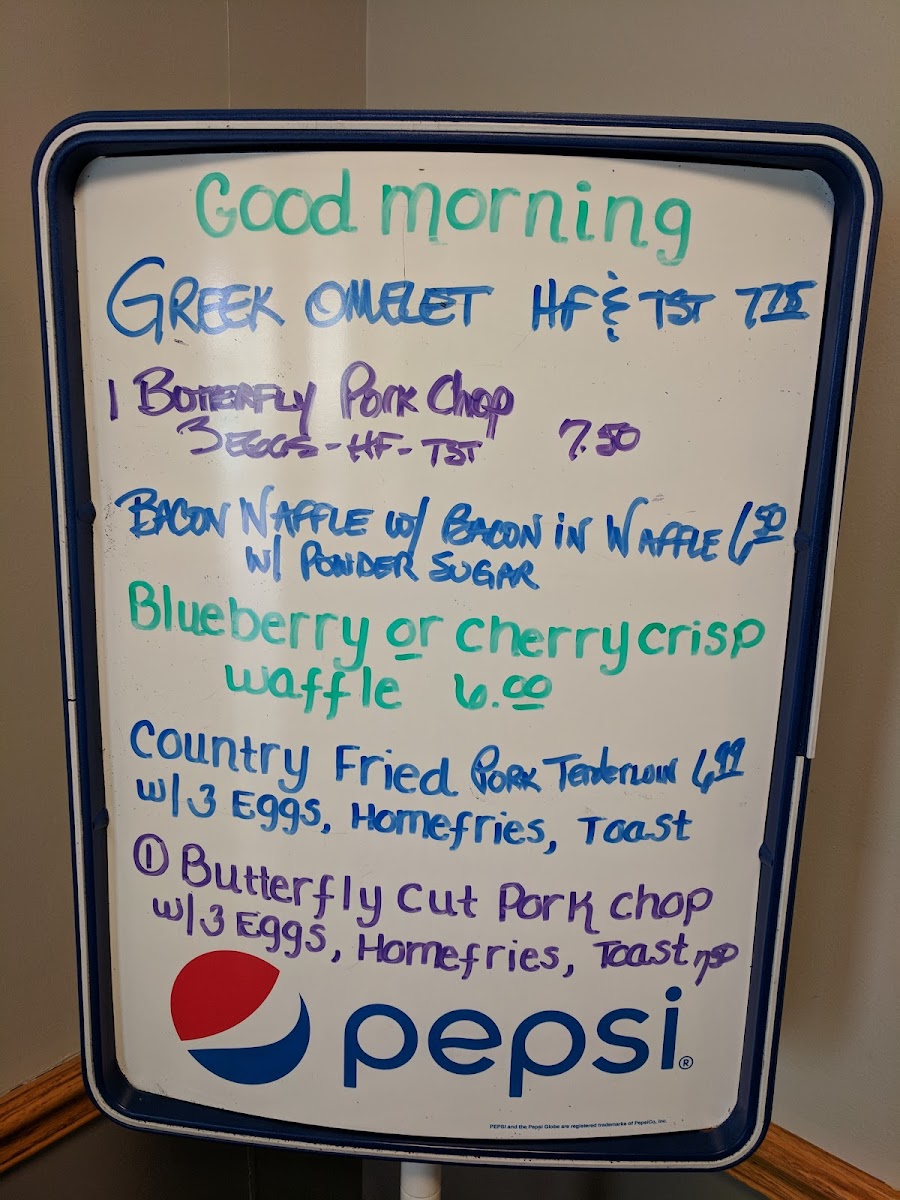 Good morning
GREEK OMELET HF & TST 7.75
1 BUTTERFLY PORK Chop
3 EGGS - HF - TST 7.50
BACON WAFFLE W/ BACON in WAFFLE 6.50
W/ POWDER SUGAR
Blueberry or cherry crisp
waffle 6.00
Country Fried PORK Tenderloin 6.99
w/3 Eggs, Homefries, Toast
① Butterfly Cut Pork chop
w/3 Eggs, Homefries, Toast 7.50
pepsi®
PEPSI and the Pepsi Globe are registered trademarks of PepsiCo, Inc.